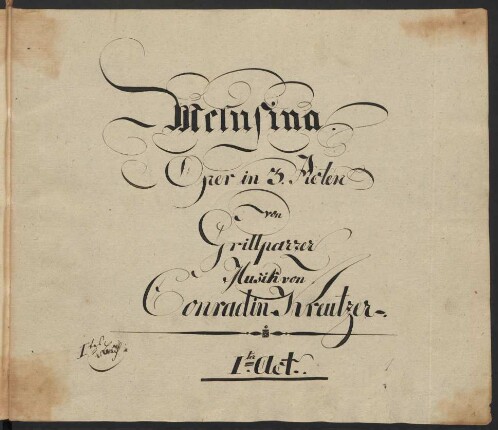 Melusina.
Oper in 3. Acten
von
Grillparzer
Musik von
Conradin Kreutzer.
1ter Act.